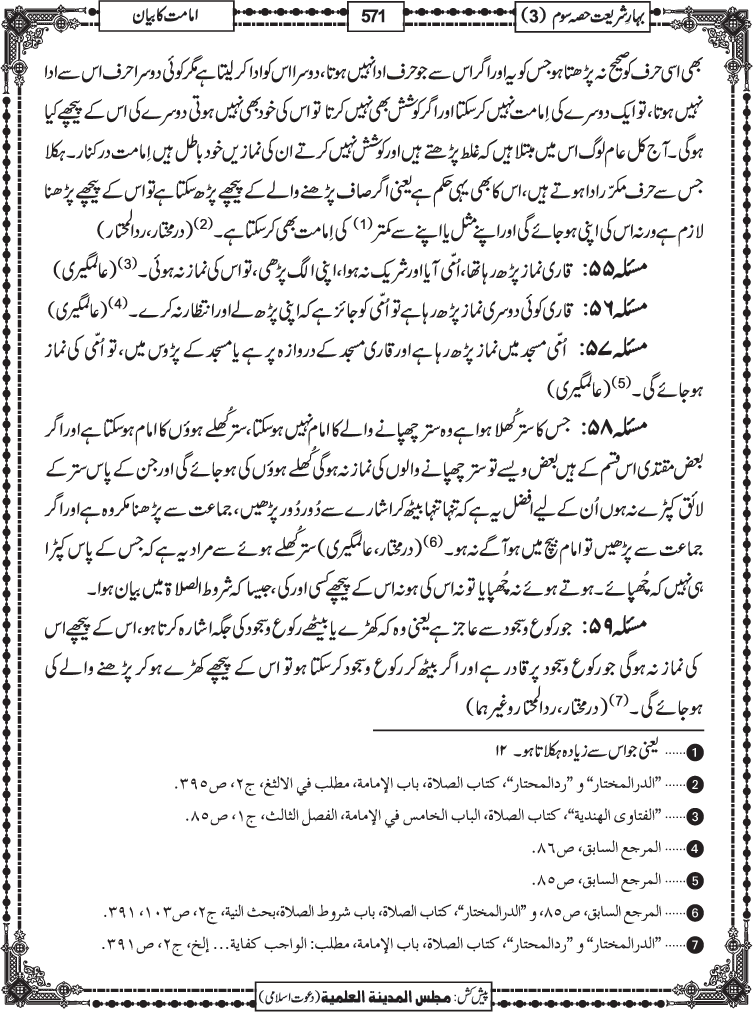 بہارِ شریعت حصہ سوم (3)
571
امامت کا بیان
بھی اسی حرف کو صحیح نہ پڑھتا ہو جس کو یہ اور اگر اس سے جو حرف ادا نہیں ہوتا، دوسرا اس کو ادا کر لیتا ہے مگر کوئی دوسرا حرف اس سے ادا
نہیں ہوتا، تو ایک دوسرے کی اِمامت نہیں کر سکتا اور اگر کوشش بھی نہیں کرتا تو اس کی خود بھی نہیں ہوتی دوسرے کی اس کے پیچھے کیا
ہوگی۔ آج کل عام لوگ اس میں مبتلا ہیں کہ غلط پڑھتے ہیں اور کوشش نہیں کرتے ان کی نمازیں خود باطل ہیں اِمامت درکنار۔ ہکلا
جس سے حرف مکرّر ادا ہوتے ہیں، اس کا بھی یہی حکم ہے یعنی اگر صاف پڑھنے والے کے پیچھے پڑھ سکتا ہے تو اس کے پیچھے پڑھنا
لازم ہے ورنہ اس کی اپنی ہو جائے گی اور اپنے مثل یا اپنے سے کمتر (1) کی اِمامت بھی کر سکتا ہے۔ (2) (درمختار، ردالمحتار)
مسئلہ ۵۵: قاری نماز پڑھ رہا تھا، اُمّی آیا اور شریک نہ ہوا، اپنی الگ پڑھی، تو اس کی نماز نہ ہوئی۔ (3) (عالمگیری)
مسئلہ ۵۶: قاری کوئی دوسری نماز پڑھ رہا ہے تو اُمّی کو جائز ہے کہ اپنی پڑھ لے اور انتظار نہ کرے۔ (4) (عالمگیری)
مسئلہ ۵۷: اُمّی مسجد میں نماز پڑھ رہا ہے اور قاری مسجد کے دروازہ پر ہے یا مسجد کے پڑوس میں، تو اُمّی کی نماز
ہو جائے گی۔ (5) (عالمگیری)
مسئلہ ۵۸: جس کا ستر کُھلا ہوا ہے وہ ستر چھپانے والے کا امام نہیں ہو سکتا، ستر کُھلے ہوؤں کا امام ہو سکتا ہے اور اگر
بعض مقتدی اس قسم کے ہیں بعض ویسے تو ستر چھپانے والوں کی نماز نہ ہوگی کُھلے ہوؤں کی ہو جائے گی اور جن کے پاس ستر کے
لائق کپڑے نہ ہوں اُن کے لیے افضل یہ ہے کہ تنہا تنہا بیٹھ کر اشارے سے دُور دُور پڑھیں، جماعت سے پڑھنا مکروہ ہے اور اگر
جماعت سے پڑھیں تو امام بیچ میں ہو آگے نہ ہو۔ (6) (درمختار، عالمگیری) ستر کُھلے ہوئے سے مراد یہ ہے کہ جس کے پاس کپڑا
ہی نہیں کہ چُھپائے۔ ہوتے ہوئے نہ چُھپایا تو نہ اس کی ہو نہ اس کے پیچھے کسی اور کی، جیسا کہ شروط الصلاۃ میں بیان ہوا۔
مسئلہ ۵۹: جو رکوع و سجود سے عاجز ہے یعنی وہ کہ کھڑے یا بیٹھے رکوع و سجود کی جگہ اشارہ کرتا ہو، اس کے پیچھے اس
کی نماز نہ ہوگی جو رکوع و سجود پر قادر ہے اور اگر بیٹھ کر رکوع و سجود کر سکتا ہو تو اس کے پیچھے کھڑے ہو کر پڑھنے والے کی
ہو جائے گی۔ (7) (درمختار، ردالمحتار وغیرہما)
1 ...... یعنی جو اس سے زیادہ ہکلاتا ہو۔ ۱۲
2 ...... "الدرالمختار" و "ردالمحتار"، کتاب الصلاة، باب الإمامة، مطلب في الالثغ، ج۲، ص۳۹۵.
3 ...... "الفتاوی الهندية"، کتاب الصلاة، الباب الخامس في الإمامة، الفصل الثالث، ج۱، ص۸۵.
4 ...... المرجع السابق، ص۸۶.
5 ...... المرجع السابق، ص۸۵.
6 ...... المرجع السابق، ص۸۵، و "الدرالمختار"، کتاب الصلاة، باب شروط الصلاة،بحث النية، ج۲، ص۱۰۳، ۳۹۱.
7 ...... "الدرالمختار" و "ردالمحتار"، کتاب الصلاة، باب الإمامة، مطلب: الواجب کفاية... إلخ، ج۲، ص۳۹۱.
پیش کش: مجلس المدينة العلمية (دعوتِ اسلامی)